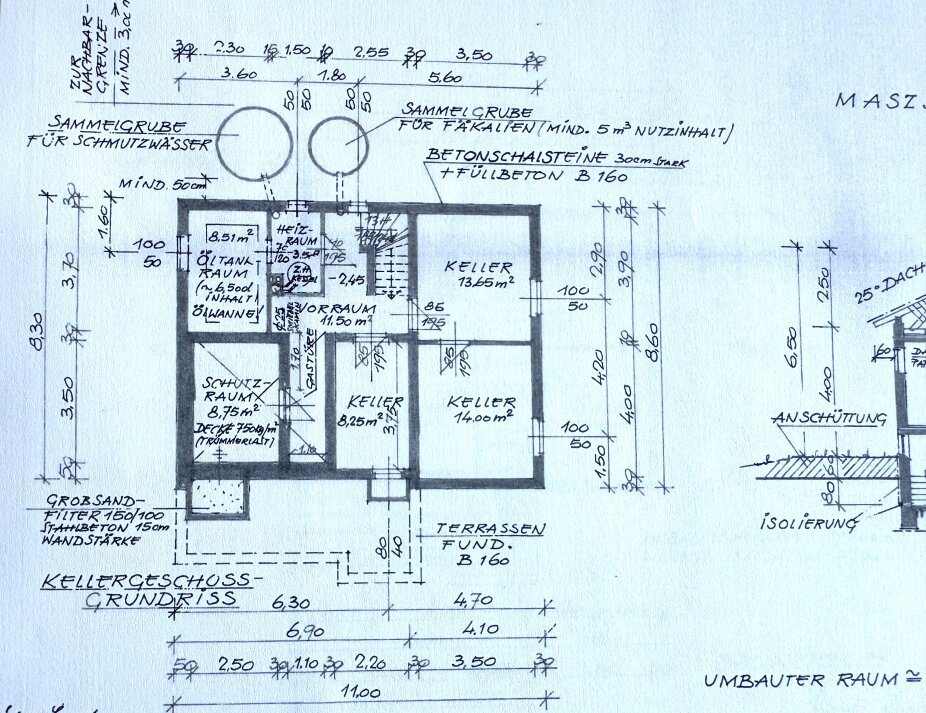 ZUR
NACHBAR-
GRENZE
MIND. 3,0
30 2.30 15 1.50 10 2.55 30 3,50 30
3.60 1.80 5,60
50 50 50 50
SAMMELGRUBE
FÜR SCHMUTZWÄSSER
SAMMELGRUBE
FÜR FÄKALIEN (MIND. 5 m³ NUTZINHALT)
MASZ
BETONSCHALSTEINE 30cm STARK
+ FÜLLBETON B 160
MIND. 50cm
1.60
100
50
8,51 m²
ÖLTANK
RAUM
(~ 6,500l
INHALT)
ÖLWANNE
HEIZ-
RAUM
3.5m²
Z.H.
KESEL
-2,45
KELLER
13,65 m²
VORRAUM
11,50 m²
86
195
100
50
85
195
85
195
1.70
GASTÜRE
SCHUTZ-
RAUM
8,75 m²
DECKE 750 kg/m²
(TRÜMMERLAST)
1.10
KELLER
8,25 m²
3,75
KELLER
14.00 m²
100
50
8,30
30 3,70 30 3,50 50
2,90 4,20 1.50
30 3,90 10 4,00 30
8,60
25° DACH
60
2,50
6,50
4,00
80
ANSCHÜTTUNG
ISOLIERUNG
GROBSAND-
FILTER 150/100
STAHLBETON 15cm
WANDSTÄRKE
80
40
TERRASSEN
FUND.
B 160
KELLERGESCHOSS-
GRUNDRISS
6,30 4,70
6,90 4.10
50 2,50 30 1.10 30 2,20 30 3,50 30
11,00
UMBAUTER RAUM ≅